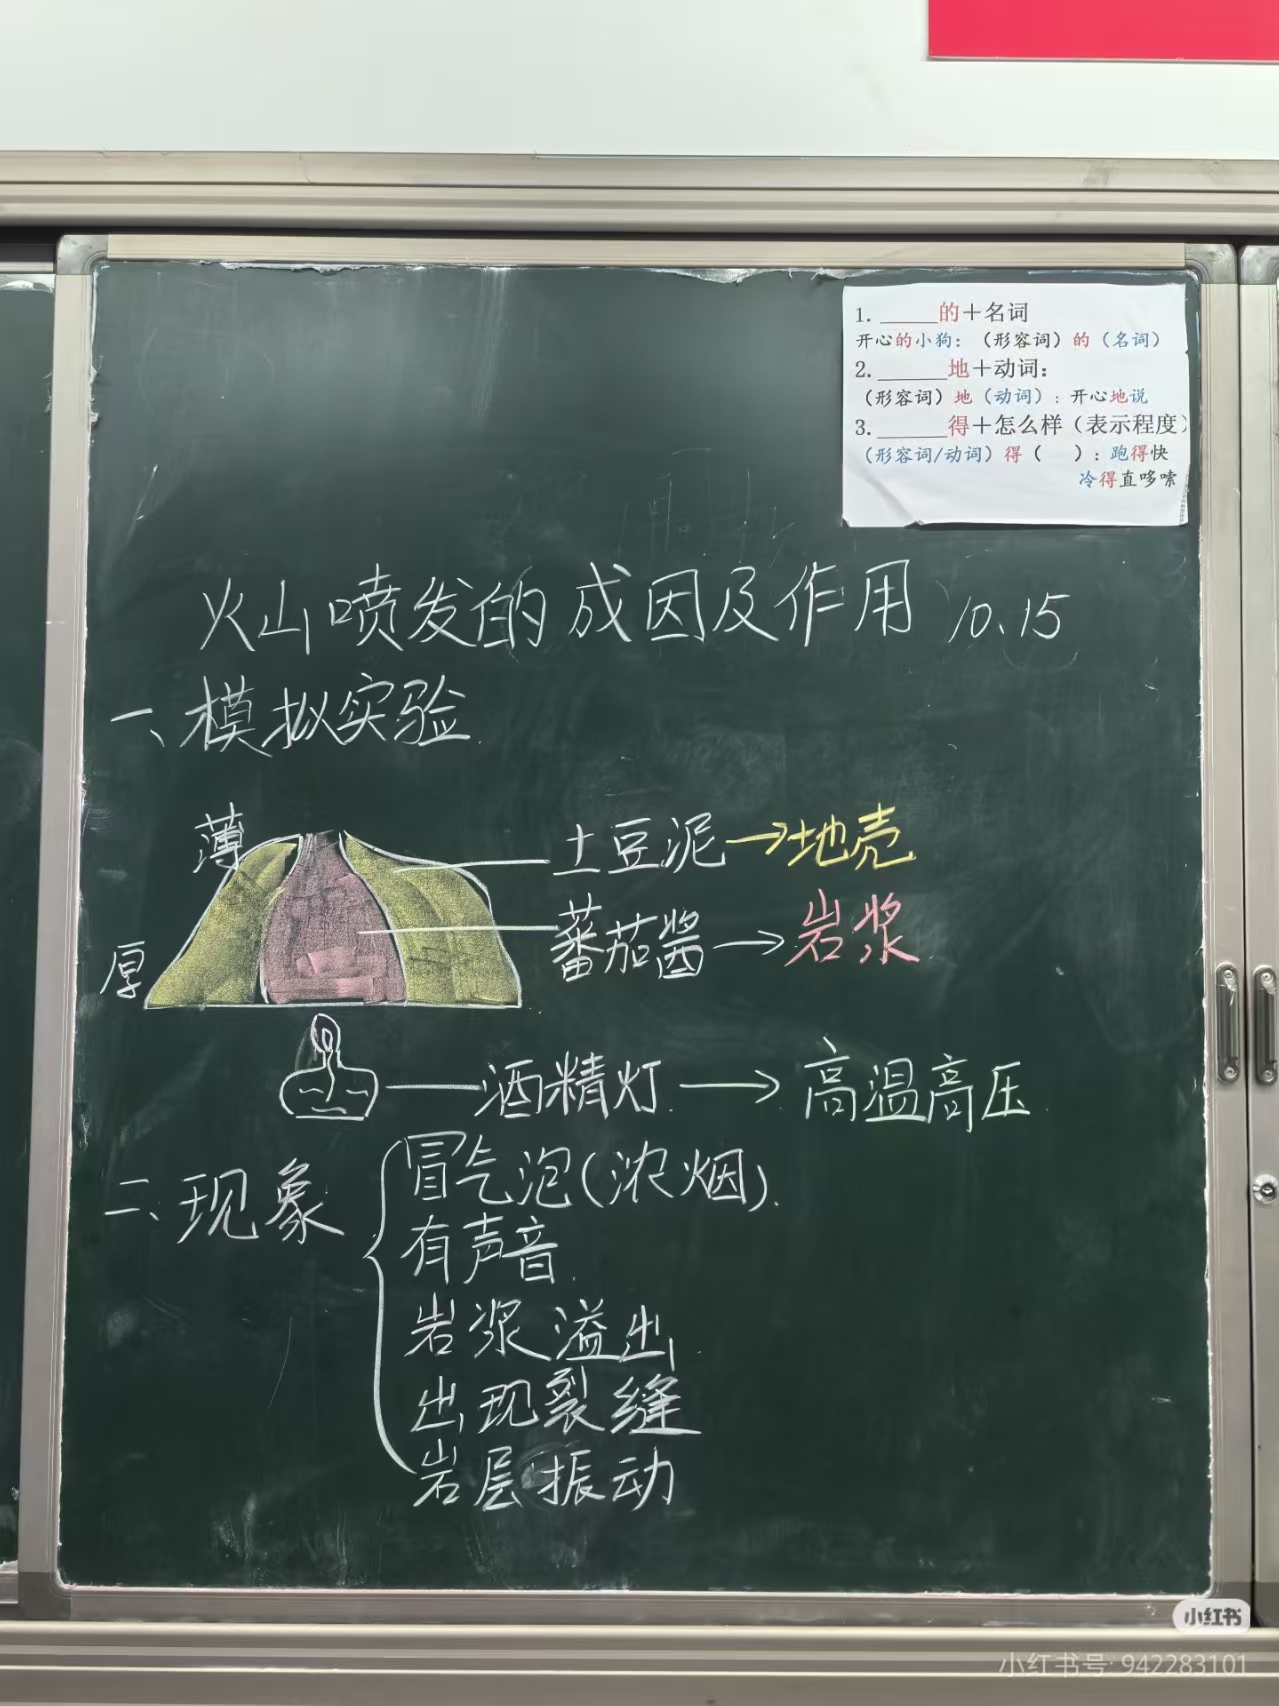 1. ______的＋名词
开心的小狗：（形容词）的（名词）
2. ______地＋动词：
（形容词）地（动词）：开心地说
3. ______得＋怎么样（表示程度）
（形容词/动词）得（　）：跑得快
冷得直哆嗦
火山喷发的成因及作用 10.15
一、模拟实验
薄
土豆泥→地壳
厚
蕃茄酱→岩浆
酒精灯→高温高压
二、现象
冒气泡(浓烟).
有声音
岩浆溢出
出现裂缝
岩层振动
小红书
小红书号: 942283101